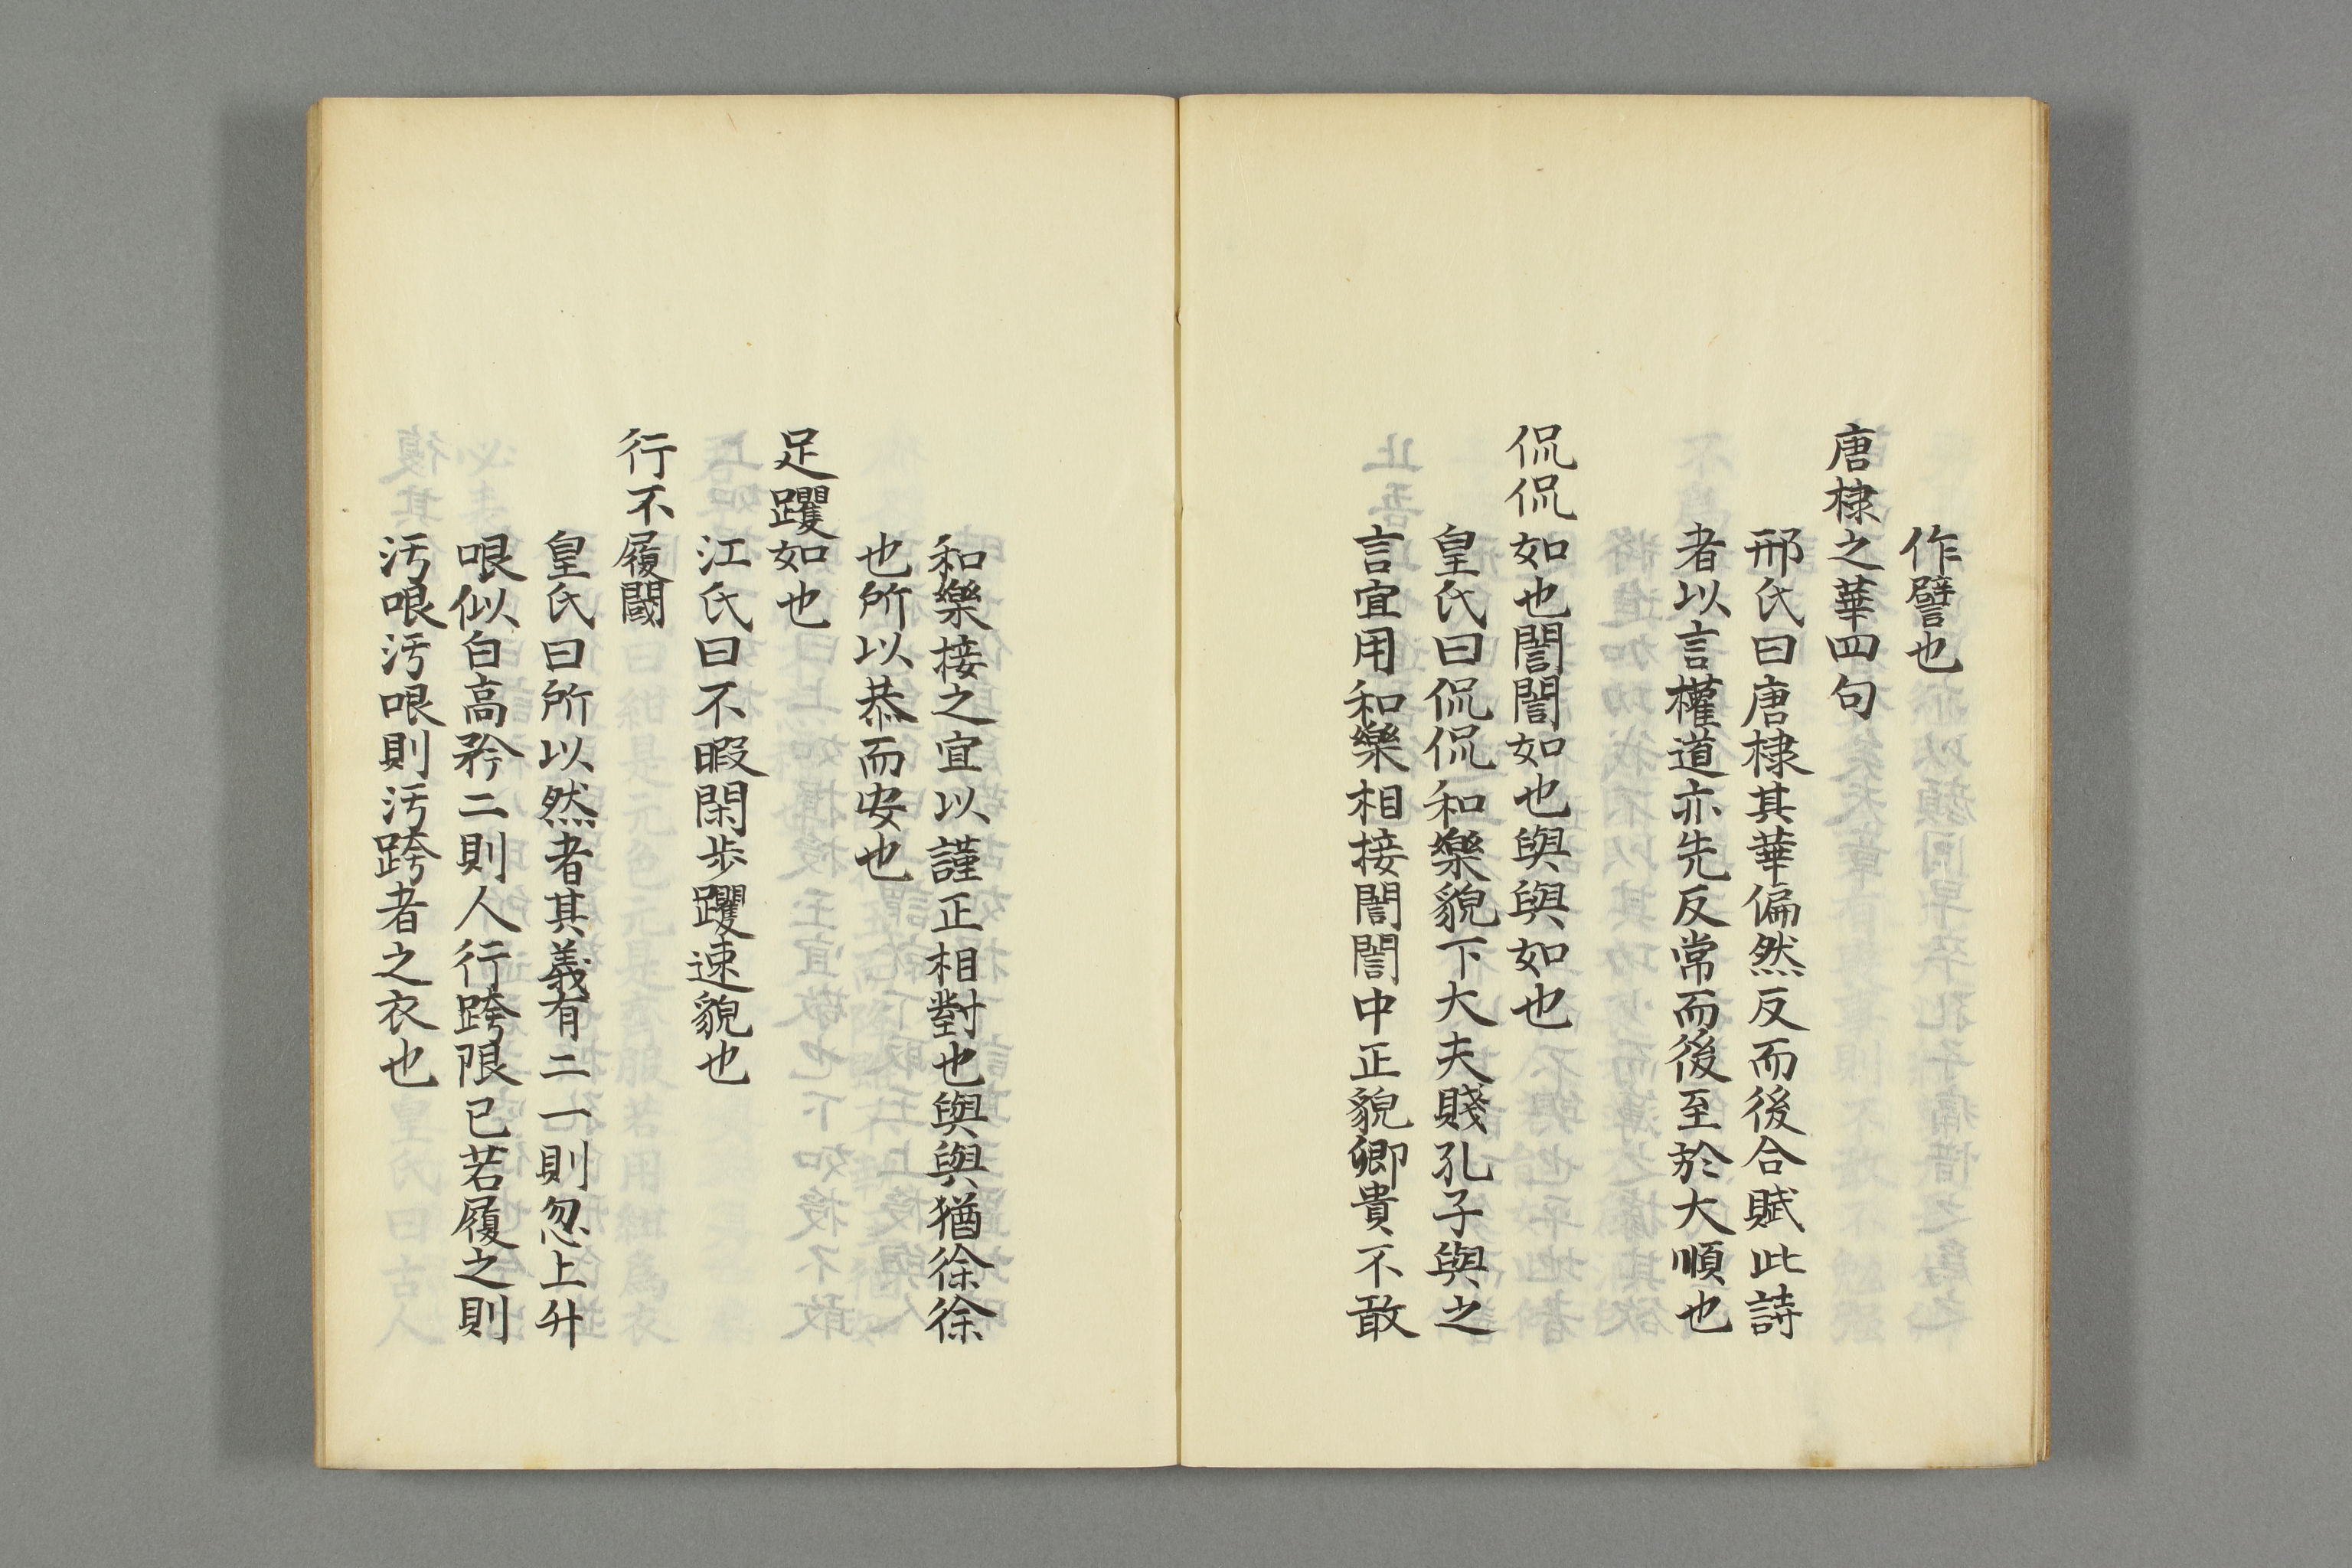 作譬也
唐棣之華四句
邢氏曰唐棣其華偏然反而後合賦此詩
者以言權道亦先反常而後至於大順也
侃侃如也誾誾如也與與如也
皇氏曰侃侃和樂貌下大夫賤孔子與之
言宜用和樂相接誾誾中正貌卿貴不敢
和樂接之宜以謹正相對也與與猶徐徐
也所以恭而安也
足躩如也
江氏曰不暇閑步躩速貌也
行不履閾
皇氏曰所以然者其義有二一則忽上升
哏似自高矜二則人行跨限已若履之則
汚哏汚哏則汚跨者之衣也